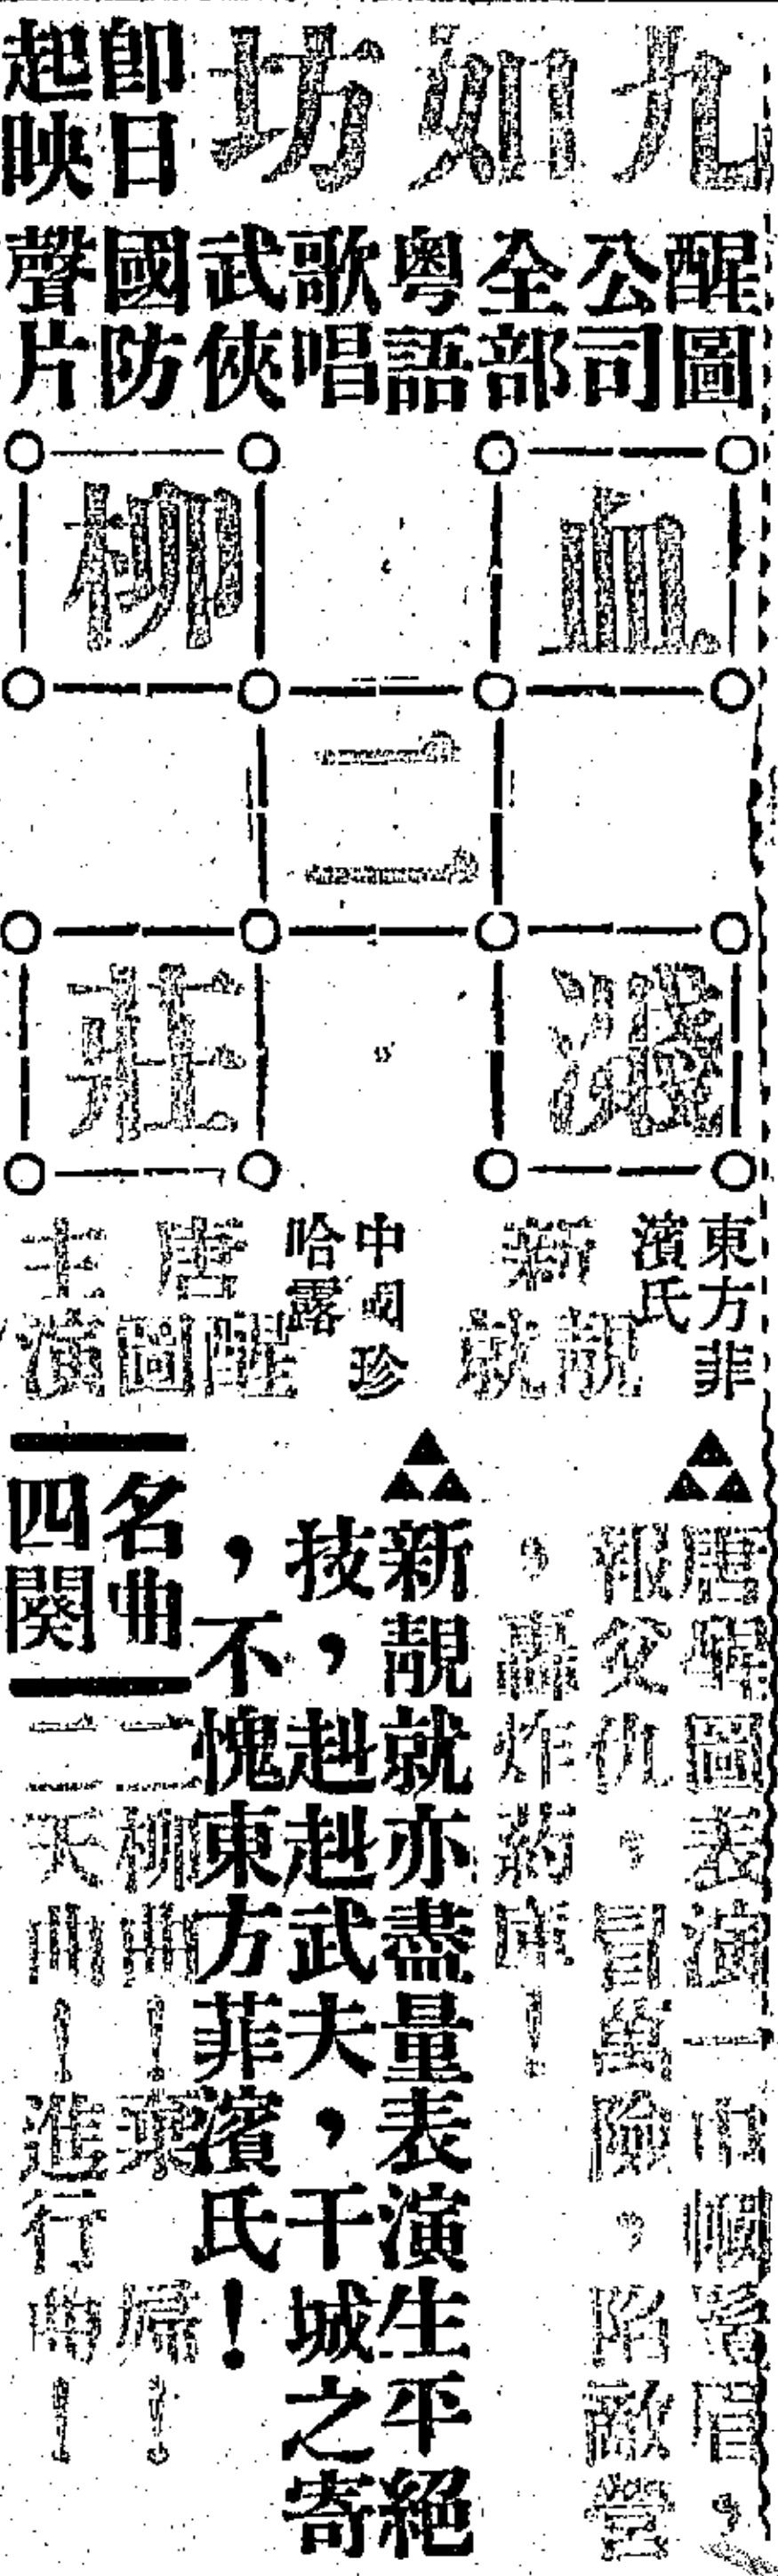 九如坊
即日起映
醒圖公司全部粵語歌唱武俠國防聲片
血濺二柳莊
東方菲濱氏
新靚就
中國珍哈露
唐醒圖
主演
唐醒圖表演一巾幗鬚眉，
報父仇。冒萬險，陷敵營
，轟炸葯庫！
新靚就亦盡量表演生平絕
技，赳赳武夫，干城之寄
，不愧東方菲濱氏！
名曲四闋